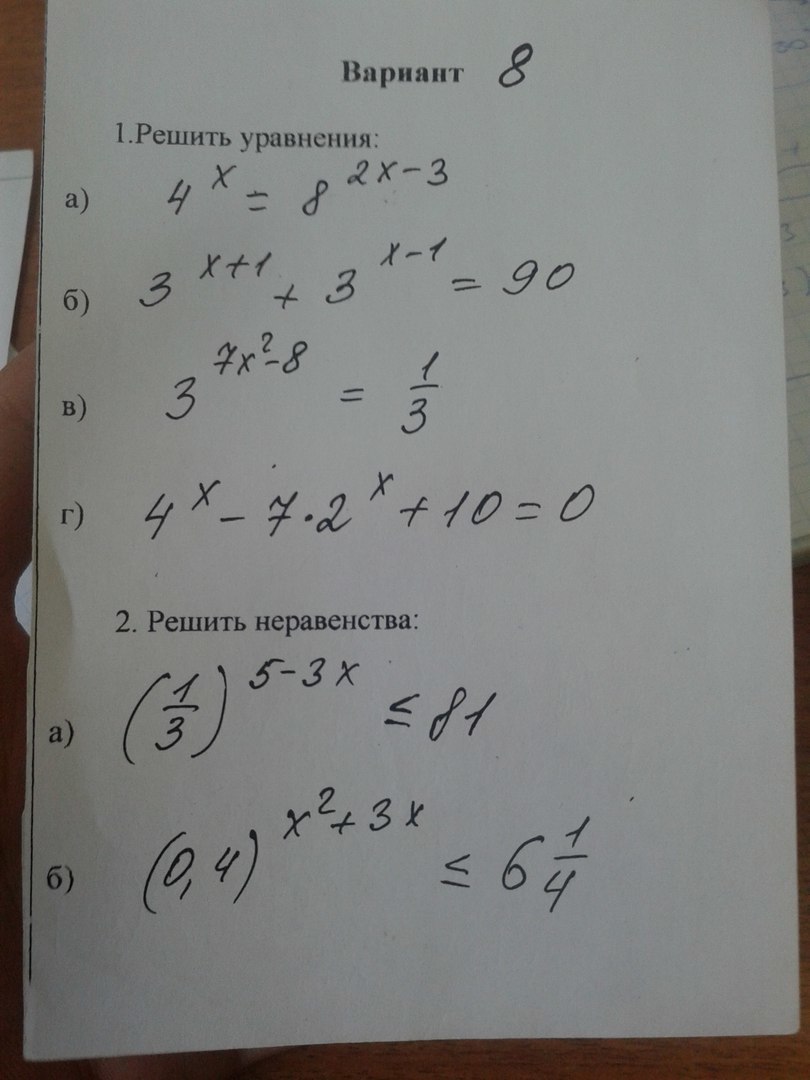 Вариант 8
1.Решить уравнения:
а) 4^x = 8^{2x-3}
б) 3^{x+1} + 3^{x-1} = 90
в) 3^{7x²-8} = 1/3
г) 4^x - 7·2^x + 10 = 0
2. Решить неравенства:
а) (1/3)^{5-3x} ≤ 81
б) (0,4)^{x²+3x} ≤ 6 1/4